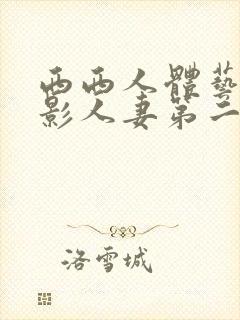 西西人體藝
影人妻第二
洛雪城